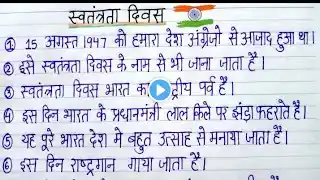 स्वतंत्रता दिवस
① 15 अगस्त 1947 को हमारा देश अंग्रेजो से आजाद हुआ था।
② इसे स्वतंत्रता दिवस के नाम से भी जाना जाता है।
③ स्वतंत्रता दिवस भारत का ट्रीय पर्व है।
④ इस दिन भारत के प्रधानमंत्री लाल किले पर झंडा फहराते है।
⑤ यह पूरे भारत देश मे बहुत उत्साह से मनाया जाता है।
⑥ इस दिन राष्ट्रगान गाया जाता है।